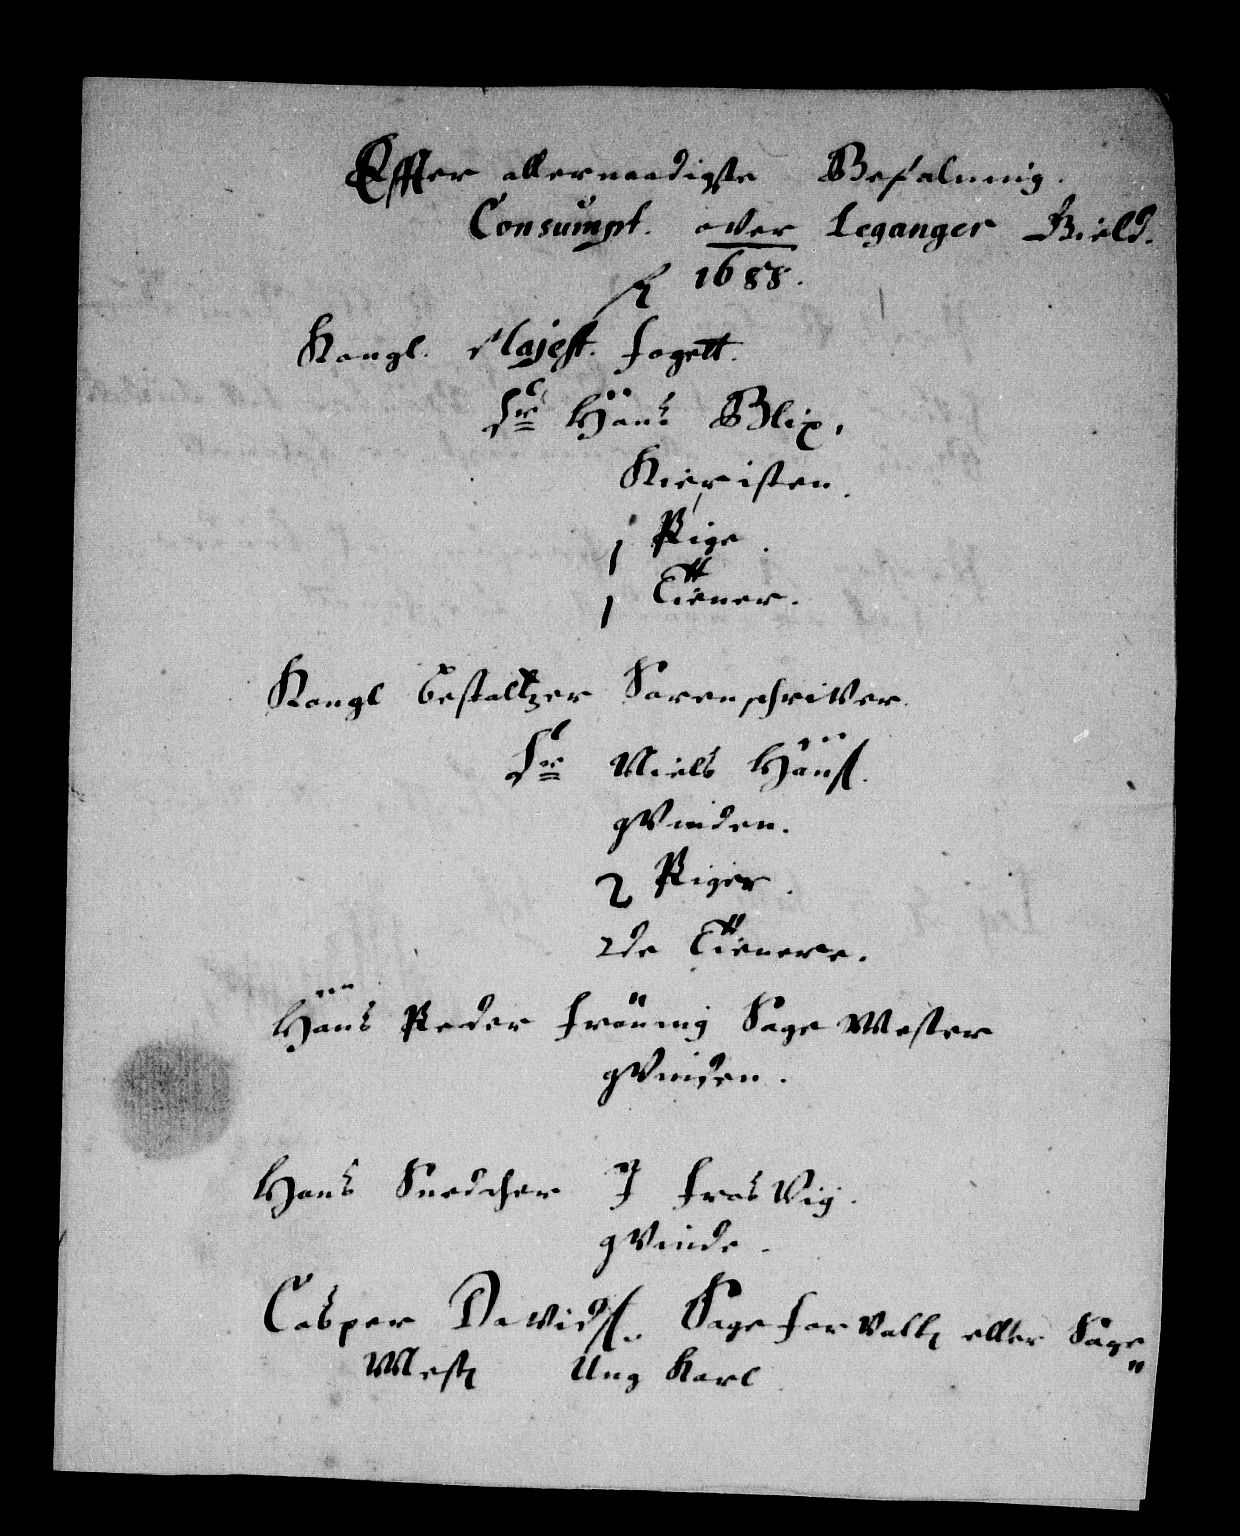 Effter allernaadigste Befalning.
Consumpt. over Leganger Gield.
1688.
Kongl. Majest. fogett.
Sr Hans Blix,
Kieristen.
1 Pige.
1 Tiener.
Kongl bestaltzer Sorenschriver.
Sr Niels Hanss.
qvinden.
2 Piger.
2de Tienere.
Hans Peder fröning Sage Mester
qvinden.
Hans Snedcher I frosvig.
qvinde.
Casper Davidss. Sageforvaltr eller Sage
Mestr Ung Karl